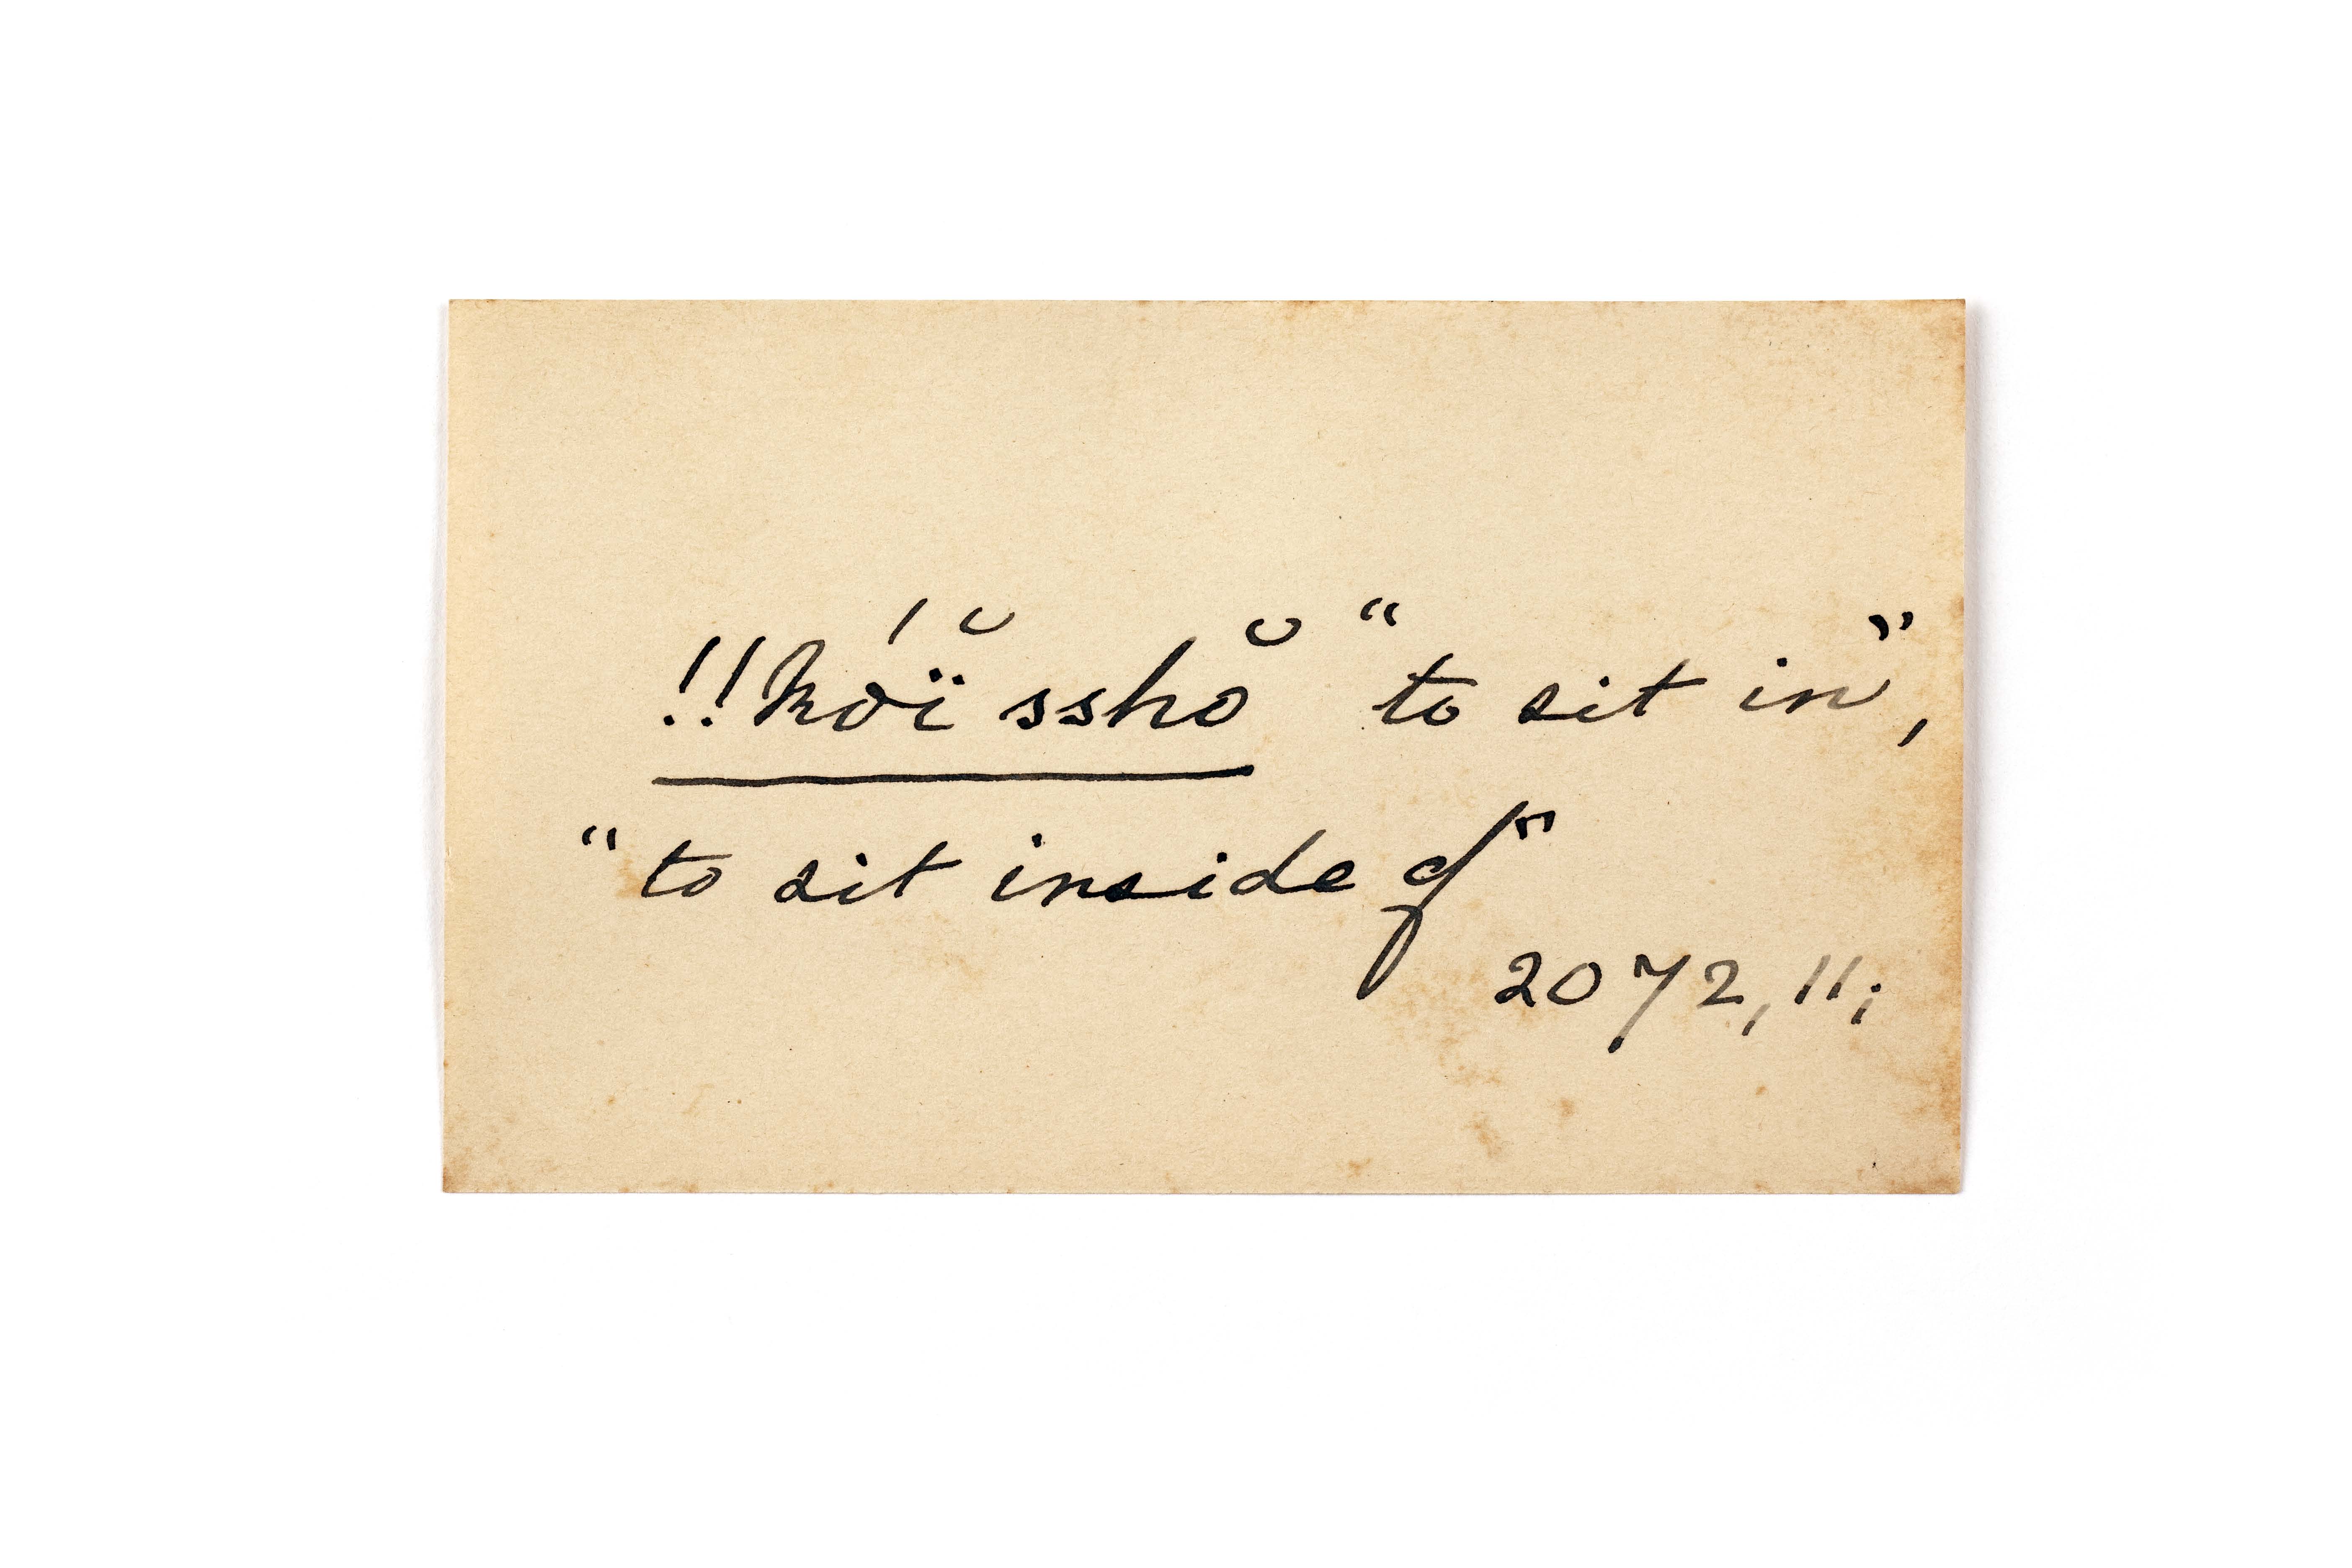 !!kóï̆ sshŏ “to sit in”,
“to sit inside of”
2072, 11;